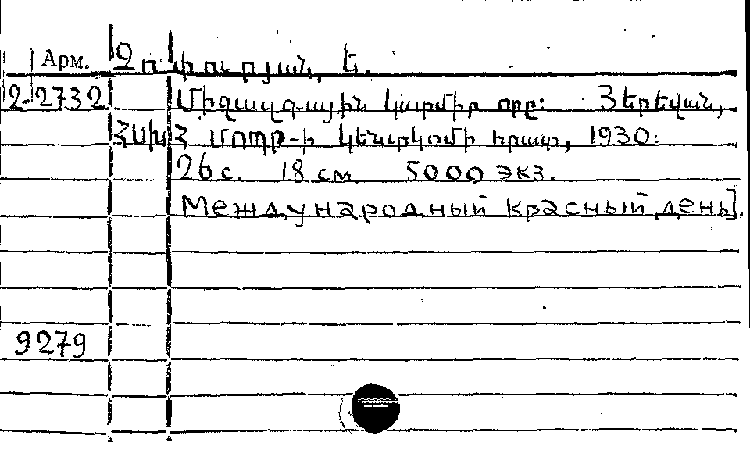 Арм. Չուխուրյան, Ե.
2-2732 Միջազգային կարմիր օրը: Յերեվան,
ՀՍԽՀ ՄՈՊՐ-ի կենտկոմի հրատ, 1930:
26 с. 18 см 5000 экз.
Международный красный день].
9279